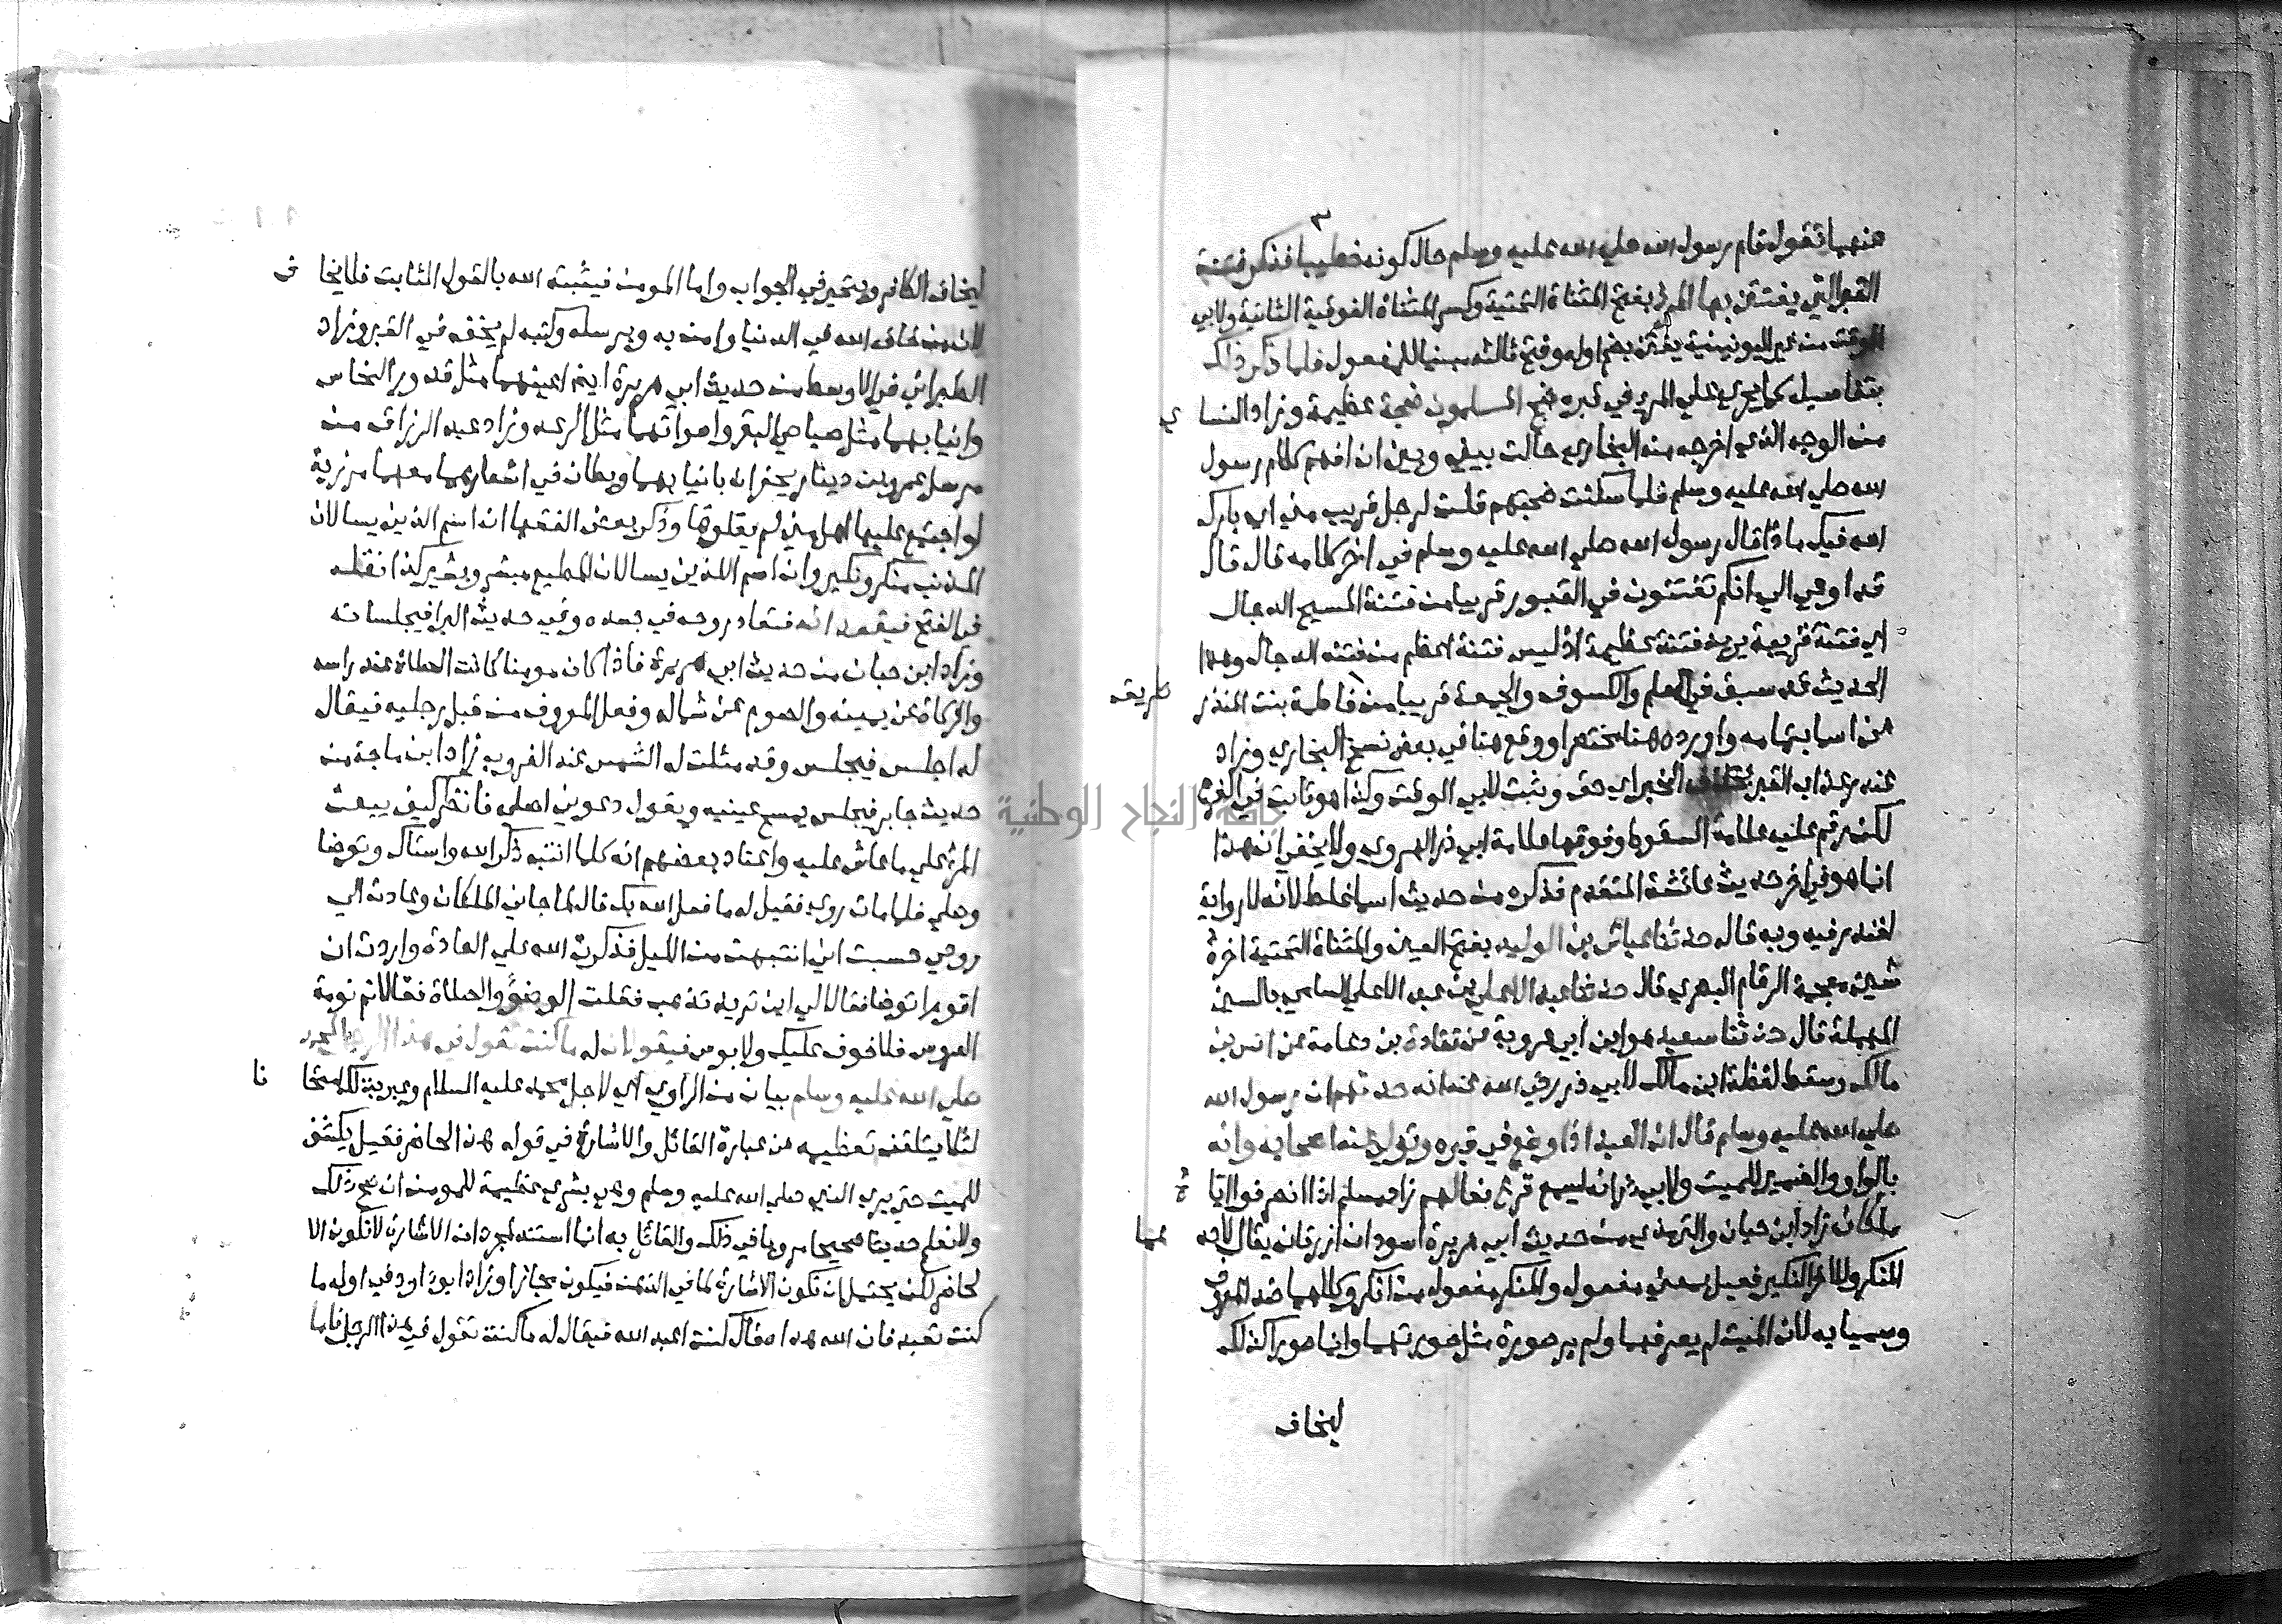 عنهما تقول قام رسول الله صلي الله عليه وسلم حال كونه خطيبا فذكر فتنة
القبر التي يفتتن بها المرء بفتح المثناة التحتية وكسر المثناة الفوقية الثانية ولابي
الوقت من غير اليونينية يفتن بضم اوله وفتح ثالثه مبنيا للمفعول فلما ذكر ذلك
بتفاصيله كما يجري علي المرء في قبره ضج المسلمون ضجة عظيمة وزاد النساي
من الوجه الذي اخرجه منه البخاري حالت بيني وبين ان افهم كلام رسول
الله صلي الله عليه وسلم فلما سكتت ضجتهم قلت لرجل قريب مني اي بارك
الله فيك ماذا قال رسول الله صلي الله عليه وسلم في اخر كلامه قال قال
قد اوحي الي انكم تفتنون في القبور قريبا من فتنة المسيح الدجال
اي فتنة قريبة يريد فتنة عظيمة اذ ليس فتنة اعظم من فتنة الدجال وهذا
الحديث قد سبق في العلم والكسوف والجمعة قريبا من فاطمة بنت المنذر
طريقه
عن اسما بتمامه واورده هنا مختصرا ووقع هنا في بعض نسخ البخاري وزاد
غندر عذاب القبر الخبر اي حق وثبت لابي الوقت وكذا هو ثابت في الفرع
لكن رقم عليه علامة السقوط وفوقها علامة ابي ذر الهروي ولا يخفي ان هذا
انما هو في اخر حديث عائشة المتقدم فذكره من حديث اسما غلط لانه لا رواية
لغندر فيه وبه قال حدثنا عياش بن الوليد بفتح العين والمثناة التحتية اخره
شين معجمة الرقام البصري قال حدثنا عبد الاعلي بن عبد الاعلي السامي بالسين
المهملة قال حدثنا سعيد هو ابن ابي عروبة عن قتادة بن دعامة عن انس بن
مالك وسقط لفظة ابن مالك لابي ذر رضي الله عنه انه حدثهم ان رسول الله
صلي الله عليه وسلم قال ان العبد اذا وضع في قبره وتولي عنه اصحابه وانه
بالواو والضمير للميت ولابي ذر انه ليسمع قرع نعالهم زاد مسلم اذا انصرفوا اتا
ملكان زاد ابن حبان والترمذي من حديث ابي هريرة اسودان ازرقان يقال لاحد
هما
المنكر وللاخر النكير فعيل بمعني مفعول والمنكر مفعول من انكر وكلاهما ضد المعروف
وسميا به لان الميت لم يعرفهما ولم ير صورة مثل صورتهما وانما صورا كذلك
ليخاف
ليخاف الكافر ويتحير في الجواب واما المومن فيثبته الله بالقول الثابت فلا يخا
ف
لان من خاف الله في الدنيا وامن به وبرسله وكتبه لم يخفه في القبر وزاد
الطبراني في الاوسط من حديث ابي هريرة ايضا اعينهما مثل قدور النحاس
وانيابهما مثل صياصي البقر واصواتهما مثل الرعد وزاد عبد الرزاق من
مرسل عمرو بن دينار يحفران بانيابهما ويطان في اشعارهما معهما مرزبة
لو اجتمع عليها اهل مني لم يقلوها وذكر بعض الفقها ان اسم الذين يسالان
المذنب منكر ونكير وان اسم اللذين يسالان المطيع مبشر وبشير كذا نقله
في الفتح فيقعدانه فتعاد روحه في جسده وفي حديث البرا فيجلسانه
وزاد ابن حبان من حديث ابي هريرة فاذا كان مومنا كانت الصلاة عند راسه
والزكاة عن يمينه والصوم عن شماله وفعل المعروف من قبل رجليه فيقال
له اجلس فيجلس وقد مثلت له الشمس عند الغروب زاد ابن ماجة من
حديث جابر فيجلس يمسح عينيه ويقول دعوني اصلي فانظر كيف يبعث
المرء علي ما عاش عليه واعتاد بعضهم انه كلما انتبه ذكر الله واستاك وتوضا
وصلي فلما مات روي فقيل له ما فعل الله بك قال لما جاني الملكان وعادت الي
روحي حسبت اني انتبهت من الليل فذكرت الله علي العادة واردت ان
اقوم اتوضا فقالا لي اين تريد تذهب فقلت الوضوء والصلاة فقالا نم نومة
العروس فلا خوف عليك ولا بوس فيقولان له ما كنت تقول في هذا الرجل لمحمد
صلي الله عليه وسلم بيان من الراوي اي لاجل محمد عليه السلام وعبر بذلك امتحا
نا
لئلا يتلقف تعظيمه من عبارة القائل والاشارة في قوله هذا الحاضر فقيل يكشف
للميت حتي يري النبي صلي الله عليه وسلم وهي بشري عظيمة للمومن ان صح ذلك
ولا نعلم حديثا صحيحا مرويا في ذلك والقائل به انما استند لمجرد ان الاشارة لا تكون الا
لحاضر لكن يحتمل ان تكون الاشارة لما في الذهن فيكون مجازا وزاد ابو داود في اوله ما
كنت تعبد فان الله هداه قال كنت اعبد الله فيقال له ما كنت تقول في هذا الرجل فاما
جامعة النجاح الوطنية